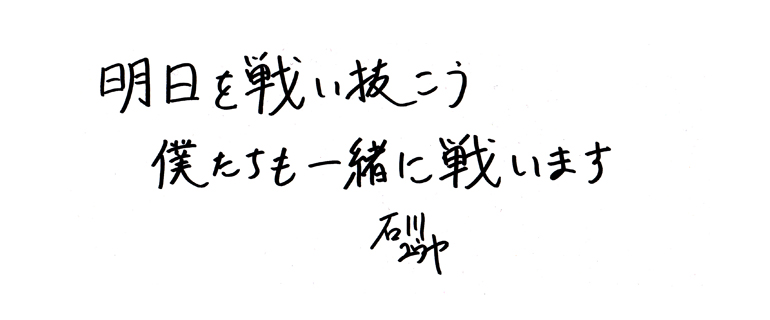 明日を戦い抜こう
僕たちも一緒に戦います
石川